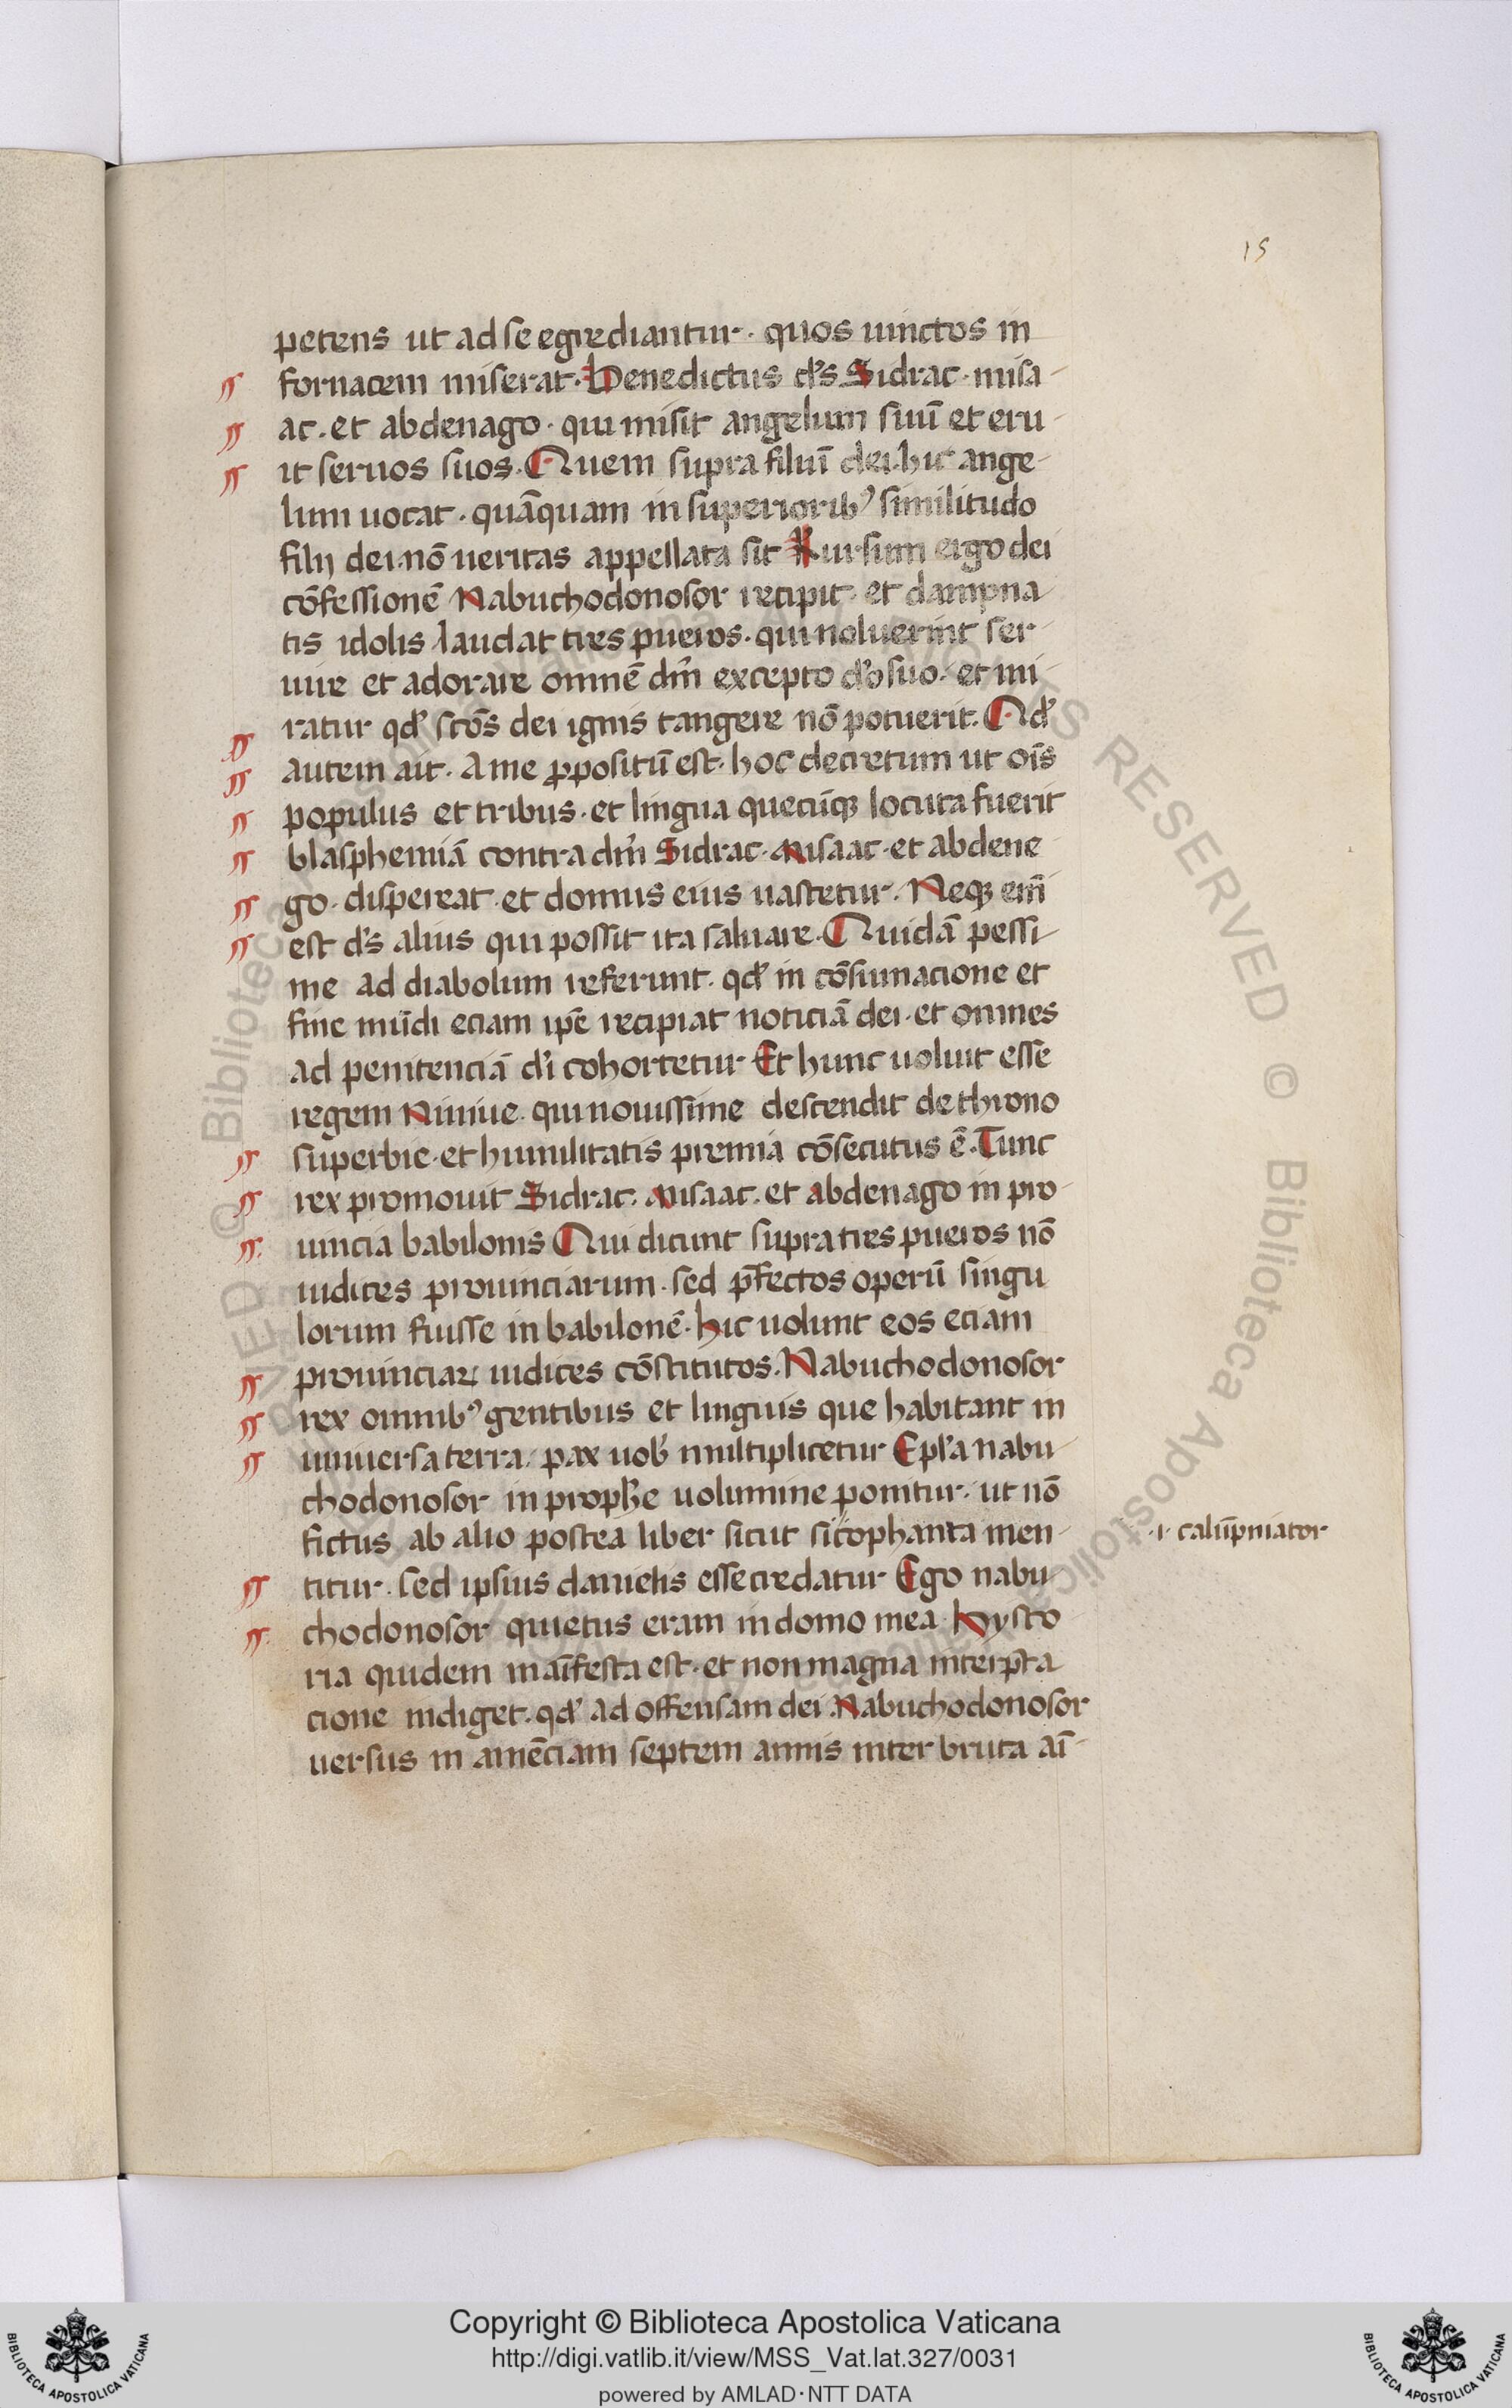 15
petens ut ad se egrediantur · quos uinctos in
fornacem miserat · Benedictus ds̃ Sidrac · misa-
ac · et abdenago · qui misit angelum suũ et eru-
it seruos suos · Quem supra filiũ dei · hic ange-
lum uocat · quãquam in superiorib᾽ similitudo
filij dei · nõ ueritas appellata sit Rursum ergo dei
cõfessionẽ Nabuchodonosor recipit · et dampna-
tis idolis laudat tres pueros · qui noluerint ser-
uire et adorare omnẽ dm̃ excepto do᾽ suo · et mi-
ratur qd᾽ sctõs dei ignis tangere nõ potuerit · Qd᾽
autem ait · A me ꝓpositũ est · hoc decretum ut oĩs
populus et tribus · et lingua quecũqꝫ locuta fuerit
blasphemiã contra dm̃ Sidrac · Misaac · et abdene-
go · dispereat · et domus eius uastetur · Neqꝫ em̃
est ds̃ alius qui possit ita saluare · Quidã pessi-
me ad diabolum referunt · qd᾽ in cõsumacione et
fine mũdi eciam ip̃e recipiat noticiã dei · et omnes
ad penitenciã d᾽i cohortetur Et hunc uoluit esse
regem Niniue · qui nouissime descendit de throno
superbie · et humilitatis premia cõsecutus ẽ · Tunc
rex promouit Sidrac · Misaac · et abdenago in pro-
uincia babilonis Qui dicunt supra tres pueros nõ
iudices prouinciarum · sed p̃fectos operũ singu
lorum fuisse in babilonẽ · hic uolunt eos eciam
prouinciaꝝ iudices cõstitutos · Nabuchodonosor
rex omnib᾽ gentibus et linguis que habitant in
uniuersa terra · pax uob᾽ multiplicetur Epl᾽a nabu-
chodonosor in proph᾽e uolumine ponitur · ut nõ
fictus ab alio postea liber sicut sicophanta men-
·i· calũpniator
titur · sed ipsius danielis esse credatur Ego nabu-
chodonosor quietus eram in domo mea · Hysto-
ria quidem maĩfesta est · et non magna interp̃ta
cione indiget · qd᾽ ad offensam dei · Nabuchodonosor
uersus in amẽciam septem annis inter bruta aĩ-
Copyright © Biblioteca Apostolica Vaticana
http://digi.vatlib.it/view/MSS_Vat.lat.327/0031
powered by AMLAD·NTT DATA